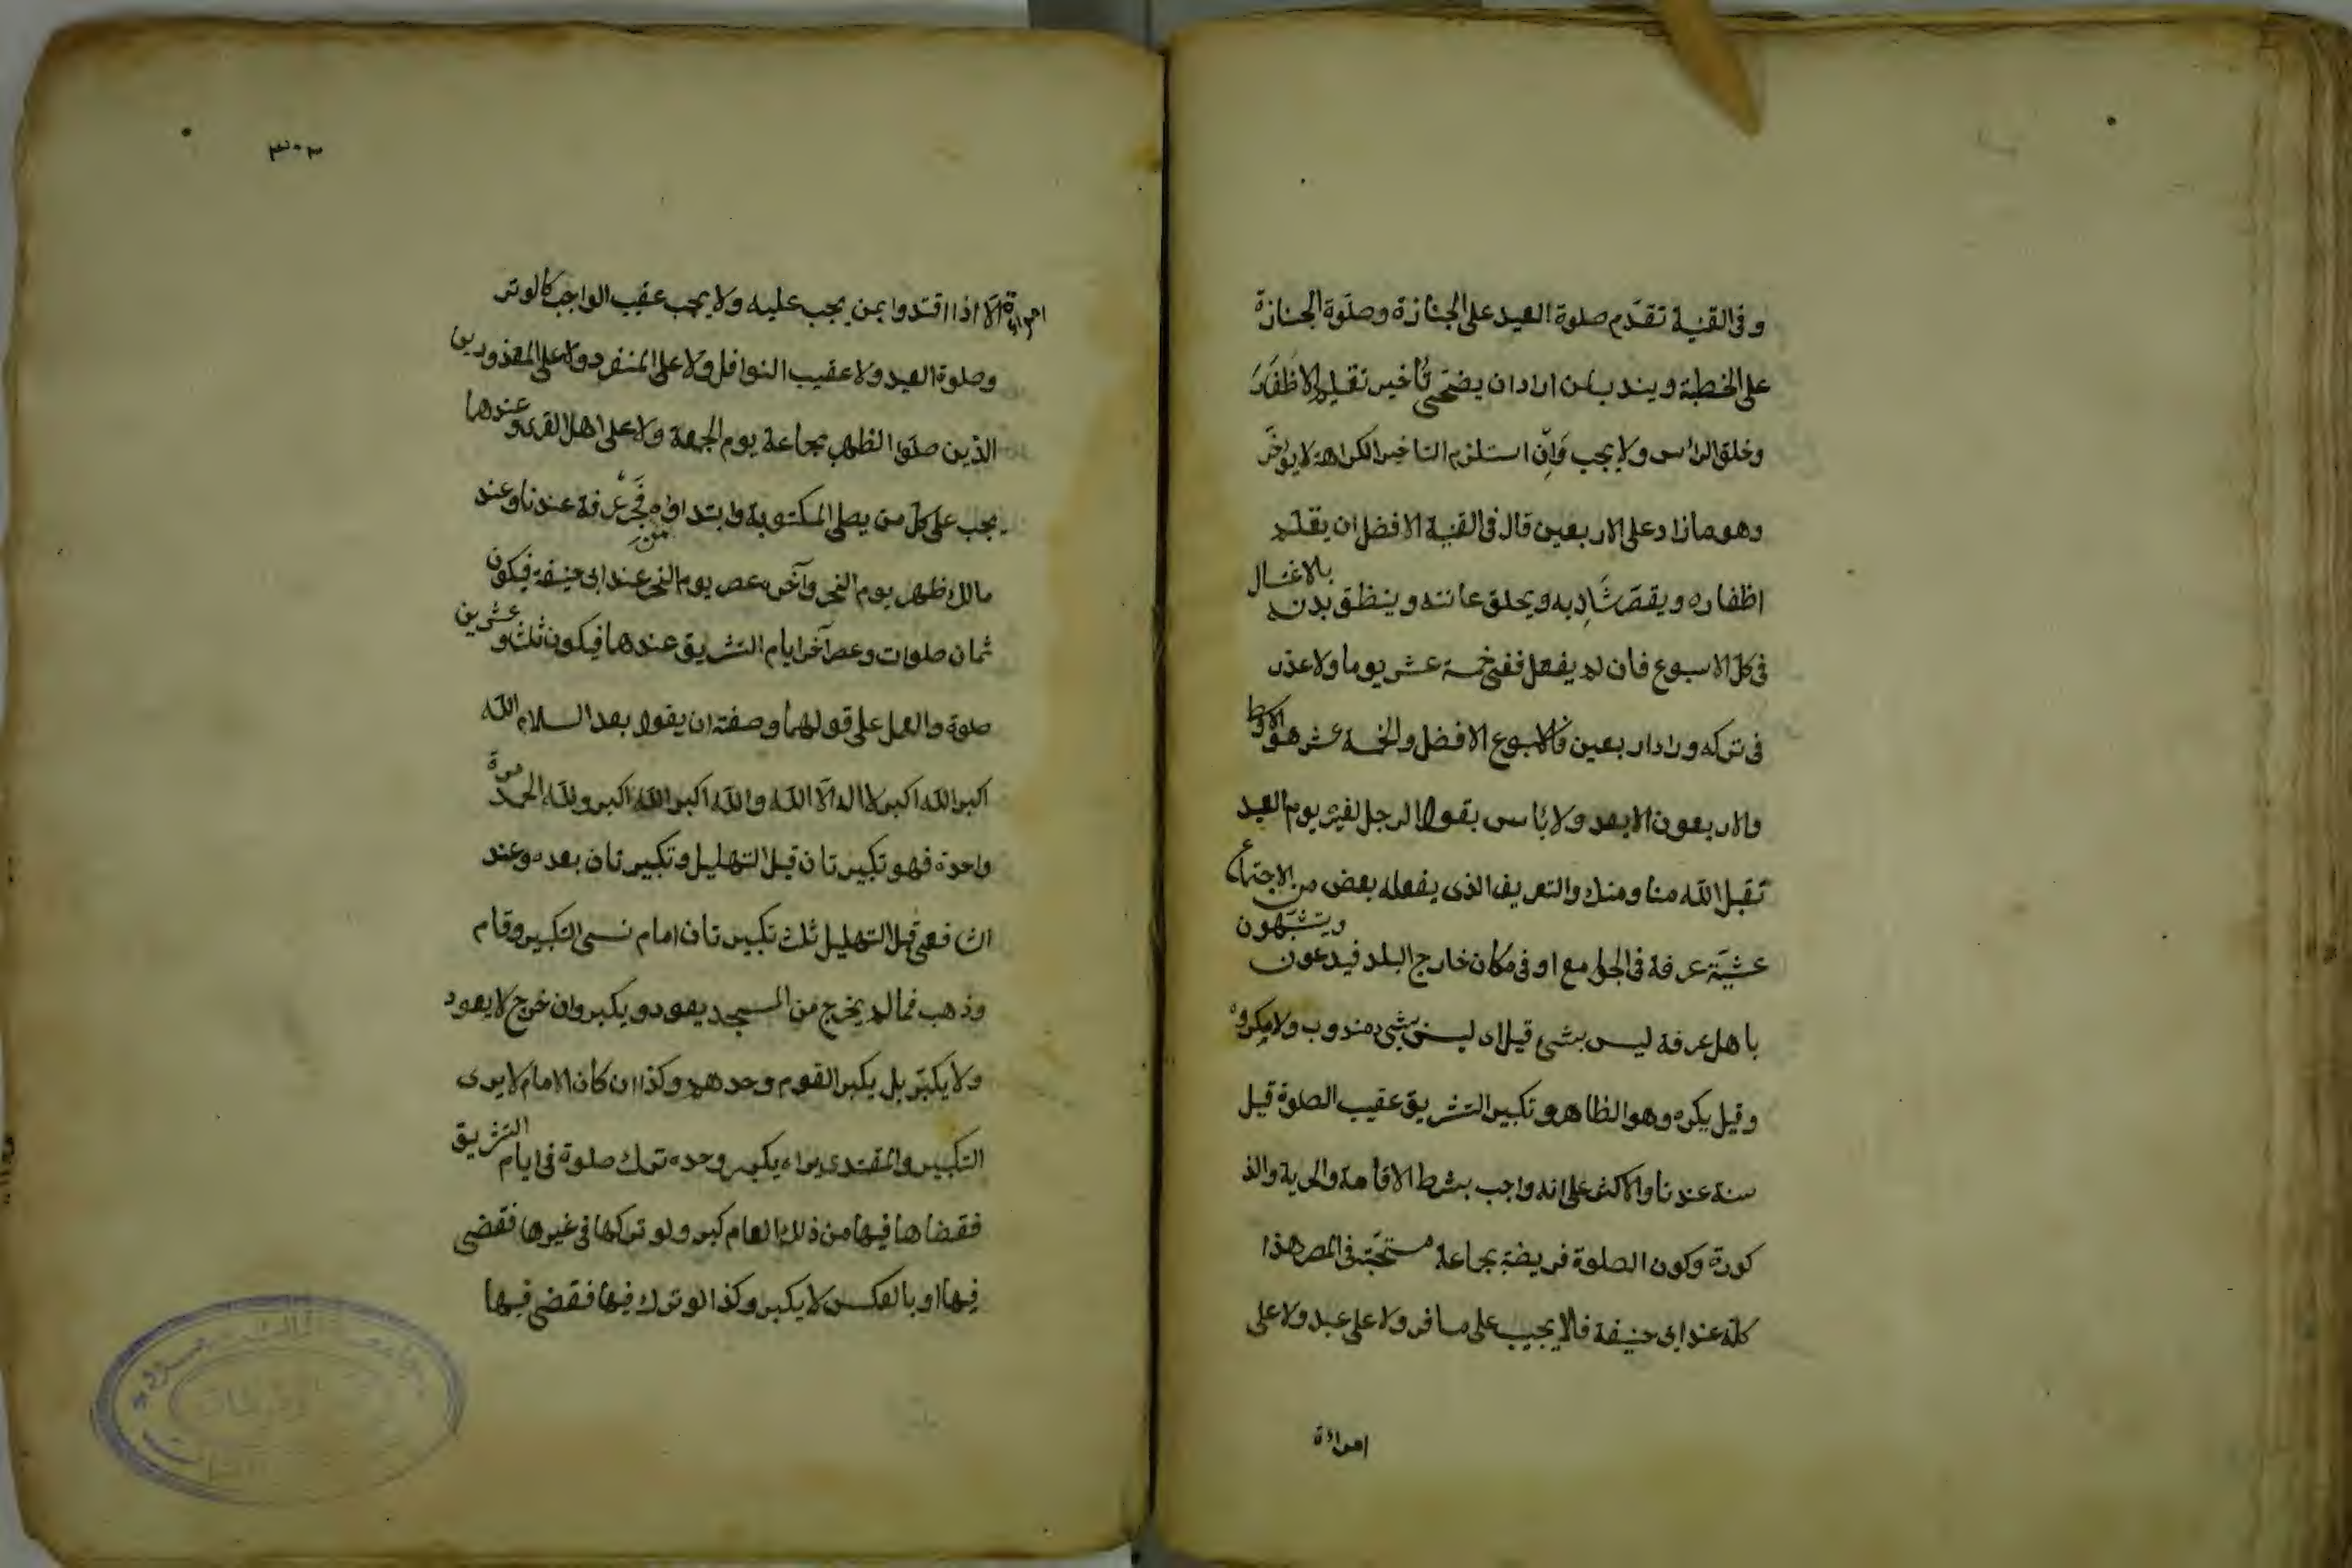 وفى القنية تقدّم صلوة العيد على الجنازة وصلوة الجنازة
على الخطبة ويندب لمن اراد ان يضحّى تأخير تقليم الاظفار
وحلق الرأس ولا يجب وان استلزم التاخير الكراهة لا يؤخّر
وهو مازاد على الاربعين قال فى القنية الافضل ان يقلم
اظفاره ويقصّ شاربه ويحلق عانته وينظق بدنه بالاغتسال
فى كلّ الاسبوع فان لم يفعل ففى خمسة عشر يوما ولا عذر
فى تركه وراء اربعين فالاسبوع الافضل والخمسة عشر هو الاوسط
والاربعون الابعد ولا بأس بقول الرجل لغيره يوم العيد
تقبل الله منا ومنك والتعريف الذى يفعله بعض من الاجتماع
عشيّة عرفة فى الجوامع او فى مكان خارج البلد فيدعون ويتشبّهون
باهل عرفة ليس بشئ قيل اى ليس بشئ مندوب ولا مكروه
وقيل يكره وهو الظاهر وتكبير التشريق عقيب الصلوة قيل
سنة عندنا والاكثر على انه واجب بشرط الاقامة والحرية والذ
كورة وكون الصلوة فريضة بجماعة مستحبّة فى المصر هذا
كلّه عند ابى حنيفة فلا يجب على مسافر ولا على عبد ولا على
امرأة
٣٠٣
امرأة الّا اذا اقتدوا بمن يجب عليه ولا يجب عقيب الواجب كالوتر
وصلوة العيد ولا عقيب النوافل ولا على المنفرد ولا على المعذورين
الذين صلّوا الظهر بجماعة يوم الجمعة ولا على اهل القرى وعندهما
يجب على كلّ من يصلى المكتوبة وابتداؤه من فجر عرفة عندنا وعند
مالك ظهر يوم النحر وآخره عصر يوم النحر عند ابى حنيفة فيكون
ثمان صلوات وعصر آخر ايام التشريق عندهما فيكون ثلث وعشرين
صلوة والعمل على قولهما وصفته ان يقول بعد السلام الله
اكبر الله اكبر لا اله الّا الله والله اكبر الله اكبر ولله الحمد مرة
واحدة فهو تكبيرتان قبل التهليل وتكبيرتان بعده وعند
الشافعى قبل التهليل ثلث تكبيرتان امام نسى التكبير وقام
وذهب فمالم يخرج من المسجد يعود ويكبر وان خرج لا يعود
ولا يكبّر بل يكبر القوم وحدهم وكذا ان كان الامام لا يرى
التكبير والمقتدى يراه يكبر وحده ترك صلوة فى ايام التشريق
فقضاها فيها من ذلك العام كبر ولو تركها فى غيرها فقضى
فيها او بالعكس لا يكبر وكذا لو ترك فيها فقضى فيها